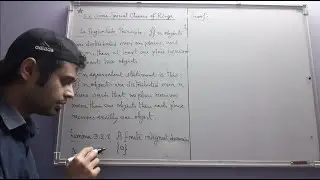 3.2 Some Special Classes of Rings
The Pigeonhole Principle: If n objects
are distributed over m places, and
if n > m, then at least one place receives
at least two objects.
An equivalent statement is this:
If n objects are distributed over n
places such that no place receives
more than one object, then each place
receives exactly one object.
Lemma 3.2.2 A finite integral domain
is